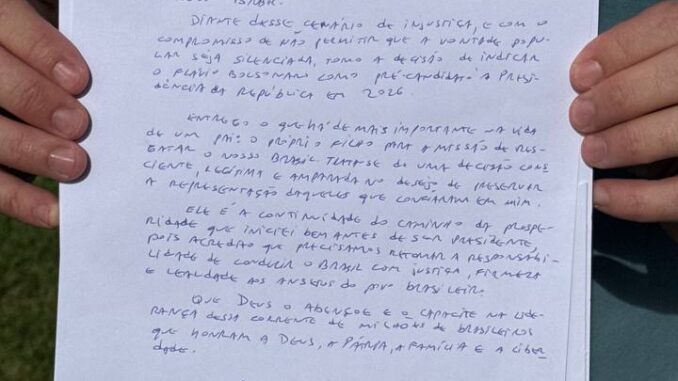 DIANTE DESSE CENÁRIO DE INJUSTIÇA, E COM O
COMPROMISSO DE NÃO PERMITIR QUE A VONTADE POPU-
LAR SEJA SILENCIADA, TOMO A DECISÃO DE INDICAR
O FLÁVIO BOLSONARO COMO PRÉ-CANDIDATO À PRESI-
DÊNCIA DA REPÚBLICA EM 2026.
ENTREGO O QUE HÁ DE MAIS IMPORTANTE NA VIDA
DE UM PAI: O PRÓPRIO FILHO PARA A MISSÃO DE RES-
GATAR O NOSSO BRASIL. TRATA-SE DE UMA DECISÃO CONS-
CIENTE, LEGÍTIMA E AMPARADA NO DESEJO DE PRESERVAR
A REPRESENTAÇÃO DAQUELES QUE CONFIARAM EM MIM.
ELE É A CONTINUIDADE DO CAMINHO DA PROSPE-
RIDADE QUE INICIEI BEM ANTES DE SER PRESIDENTE,
POIS ACREDITO QUE PRECISAMOS RETOMAR A RESPONSABI-
LIDADE DE CONDUZIR O BRASIL COM JUSTIÇA, FIRMEZA
E LEALDADE AOS ANSEIOS DO POVO BRASILEIRO.
QUE DEUS O ABENÇOE E O CAPACITE NA LIDE-
RANÇA DESSA CORRENTE DE MILHÕES DE BRASILEIROS
QUE HONRAM A DEUS, A PÁTRIA, A FAMÍLIA E A LIBER-
DADE.